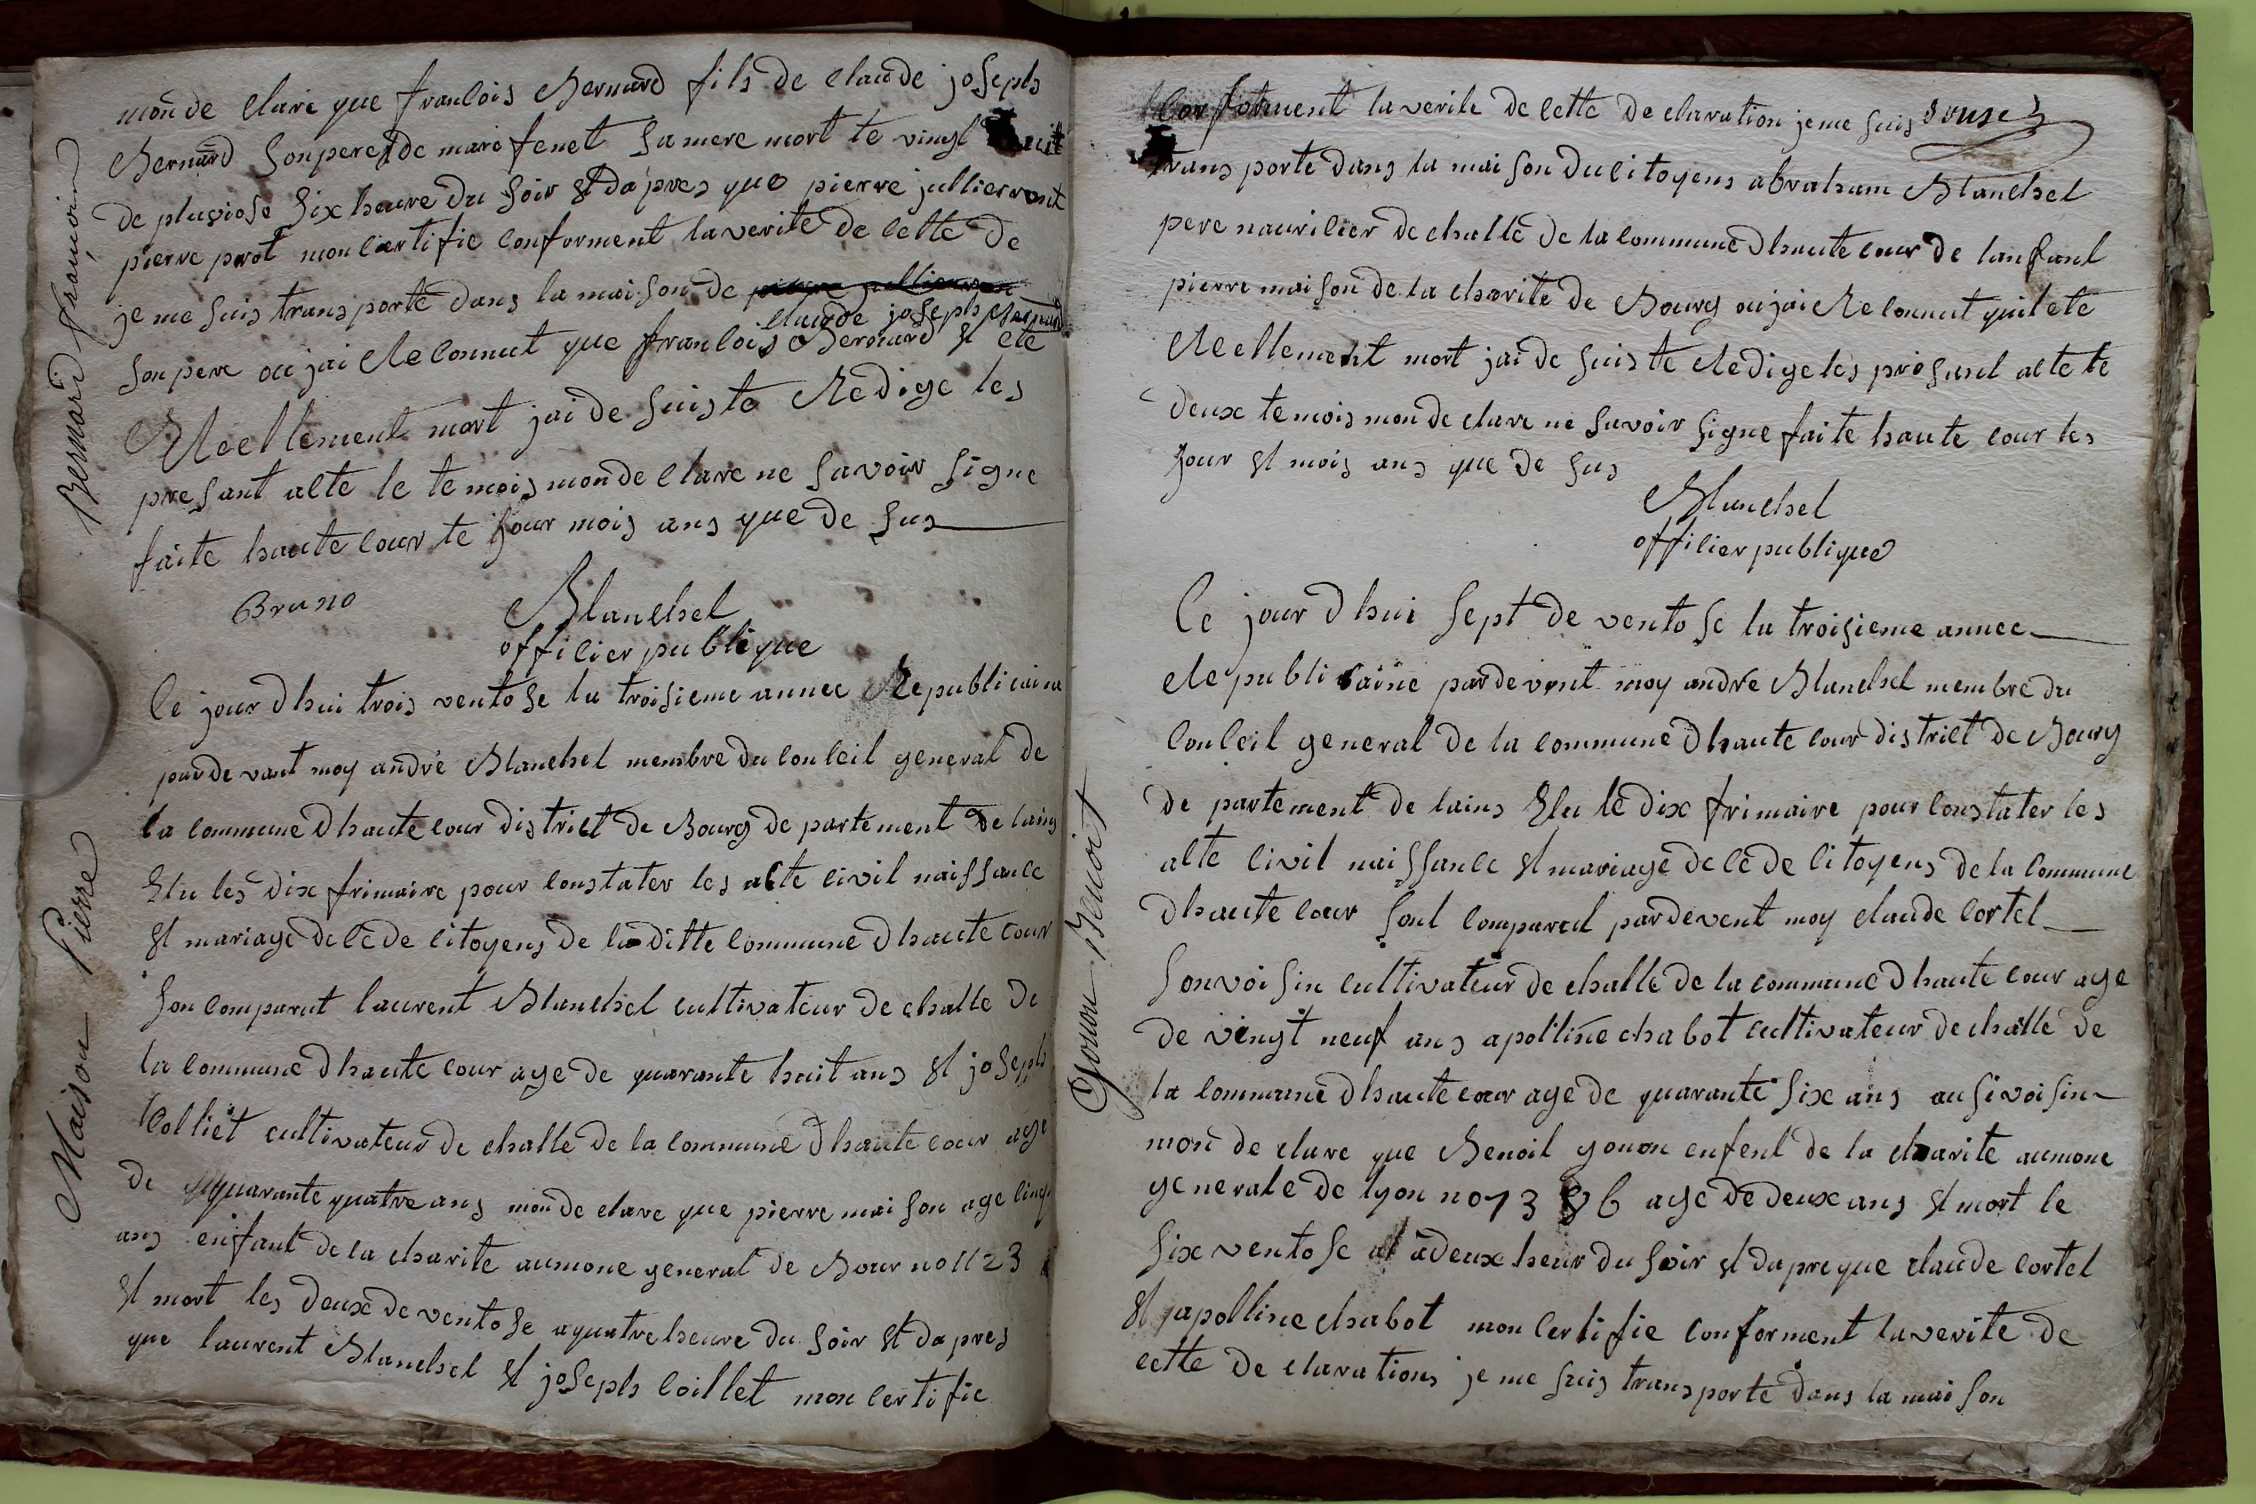 Bernard françoin
mon de clare que francois Bernard fils de claude joseph
Bernard son pere & de marie fenet sa mere mort le vingt huit
de pluviose six heure du soir et dapres que pierre jullieront
pierre prot mon certifie conforment la verite de cette de
je me suis transporte dans la maison de
claude joseph Bernard
son pere ou jai Reconnut que francois Bernard et ete
Reellement mort jai de suiste Redige les
presant acte le temois mon de clare ne savoir signe
faite haute cour le jour mois ans que de sus
Bruno
Blanchet
officier publique
Maison Pierre
Ce jour dhui trois ventose la troisieme annee Republicaine
par de vant moy andré Blanchet membre du conceil general de
la commune dhaute cour district de Bourg departement de lains
Elu les dix frimaire pour constater les acte civil naissance
et mariage de cè de citoyens de la ditte commune dhaute cour
son comparut laurent Blanchet cultivateur de challe de
la commune dhaute cour age de quarante huit ans et joseph
Colliet cultivateur de challe de la commune dhaute cour age
de quarante quatre ans mon de clare que pierre maison age cinq
ans enfant de la charite aumone general de Bour no 1123
et mort les deux de ventose a quatre heure du soir et dapres
que laurent Blanchet et joseph Coillet mon certifie
conforment la verite de cette declaration je me suis
transporte dans la maison du citoyens abraham Blanchet
pere nauricier de challe de la commune dhaute cour de lanfant
pierre maison de la charite de Bourg ou jai Reconnut quil ete
Reellement mort jai de suiste Redige les présant acte le
deux temois mon de clare ne savoir signe faite haute cour les
jour et mois ans que de sus
Blanchet
officier publique
Gonon Benoit
Ce jour dhui sept de ventose la troisieme annee
Republicaine pardevent moy andre Blanchet membre du
conceil general de la commune dhaute cour district de Bourg
departement de lains Elu le dix frimaire pour constater les
acte civil naissance et mariage de cè de citoyens de la commune
dhaute cour sont comparut pardevent moy claude Cortet
son voisin cultivateur de challe de la commune dhaute cour age
de vingt neuf ans apolline chabot cultivateur de challe de
la commune dhaute cour age de quarante six ans ausi voisin
mon de clare que Benoit gonon enfent de la charite aumone
generale de lyon no 7386 age de deux ans et mort le
six ventose à deux heur du soir et dapre que claude Cortet
et apolline chabot mon certifie conforment la verite de
cette declarations je me suis transporte dans la maison